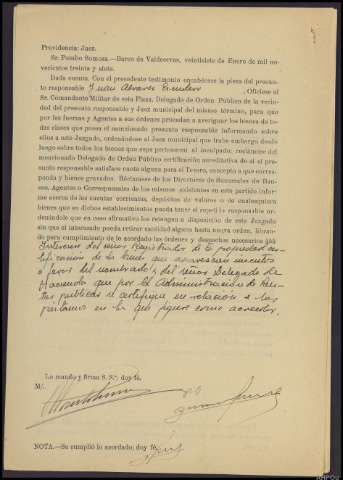 Providencia: Juez.
Sr. Pombo Somoza.—Barco de Valdeorras, veintisiete de Enero de mil no-
vecientos treinta y siete.
Dada cuenta. Con el precedente testimonio encabécese la pieza del presun-
to responsable Juan Alvarez. Ofíciese al
Sr. Comandante Militar de esta Plaza, Delegado de Orden Público de la vecin-
dad del presunto responsable y Juez municipal del mismo término, para que
por las fuerzas y Agentes a sus órdenes procedan a averiguar los bienes de to-
das clases que posea el mencionado presunto responsable informando sobre
ellos a este Juzgado, ordenándose al Juez municipal que trabe embargo desde
luego sobre todos los bienes que sepa pertenecen al inculpado, recábese del
mencionado Delegado de Orden Público certificación acreditativa de si el pre-
sunto responsable satisface cuota alguna para el Tesoro, concepto a que corres-
ponda y bienes gravados. Reclámese de los Directores de Sucursales de Ban-
cos, Agentes o Corresponsales de los mismos, existentes en este partido infor-
me acerca de las cuentas corrientes, depósitos de valores o de cualesquiera
bienes que en dichos establecimientos pueda tener el repetido responsable or-
denándole que en caso afirmativo los retengan a disposición de este Juzgado
sin que el interesado pueda retirar cantidad alguna hasta nueva orden, librán-
dose para cumplimiento de lo acordado las órdenes y despachos necesarios
del señor Registrador de la propiedad cer-
tificación de los bienes que aparezcan inscritos
a favor del nombrado y del señor Delegado de
Hacienda que por la Administración de Ren-
tas públicas se certifique en relación a los
préstamos en los que figure como acreedor.
Lo mandó y firma S. S.ª; doy fe.
M/
NOTA.—Se cumplió lo acordado, doy fe.